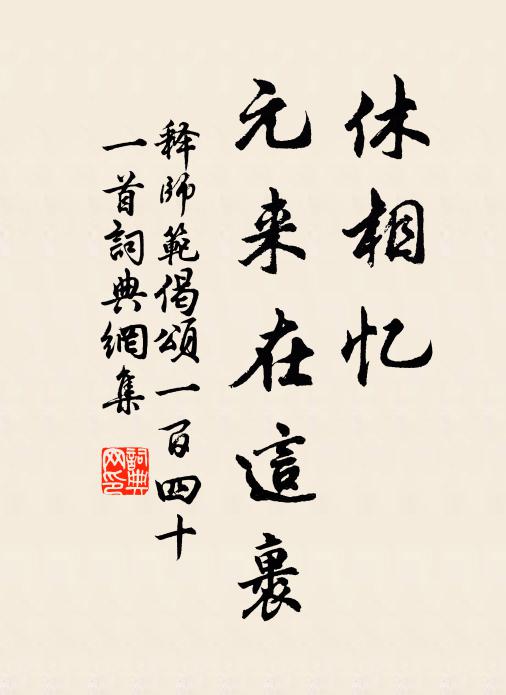 休相忆
元来在這裹
释師範偈頌一百四十
一首詞典網集
詞典网印